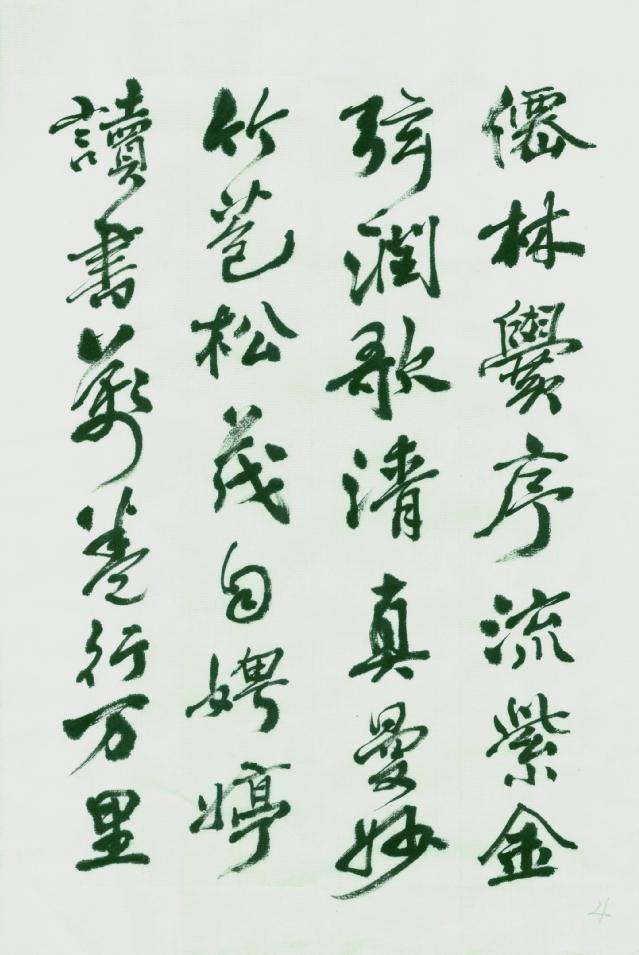 僊林黌序流紫金
弦潤歌清真曼妙
竹苞松茂自娉婷
讀書萬卷行万里
4